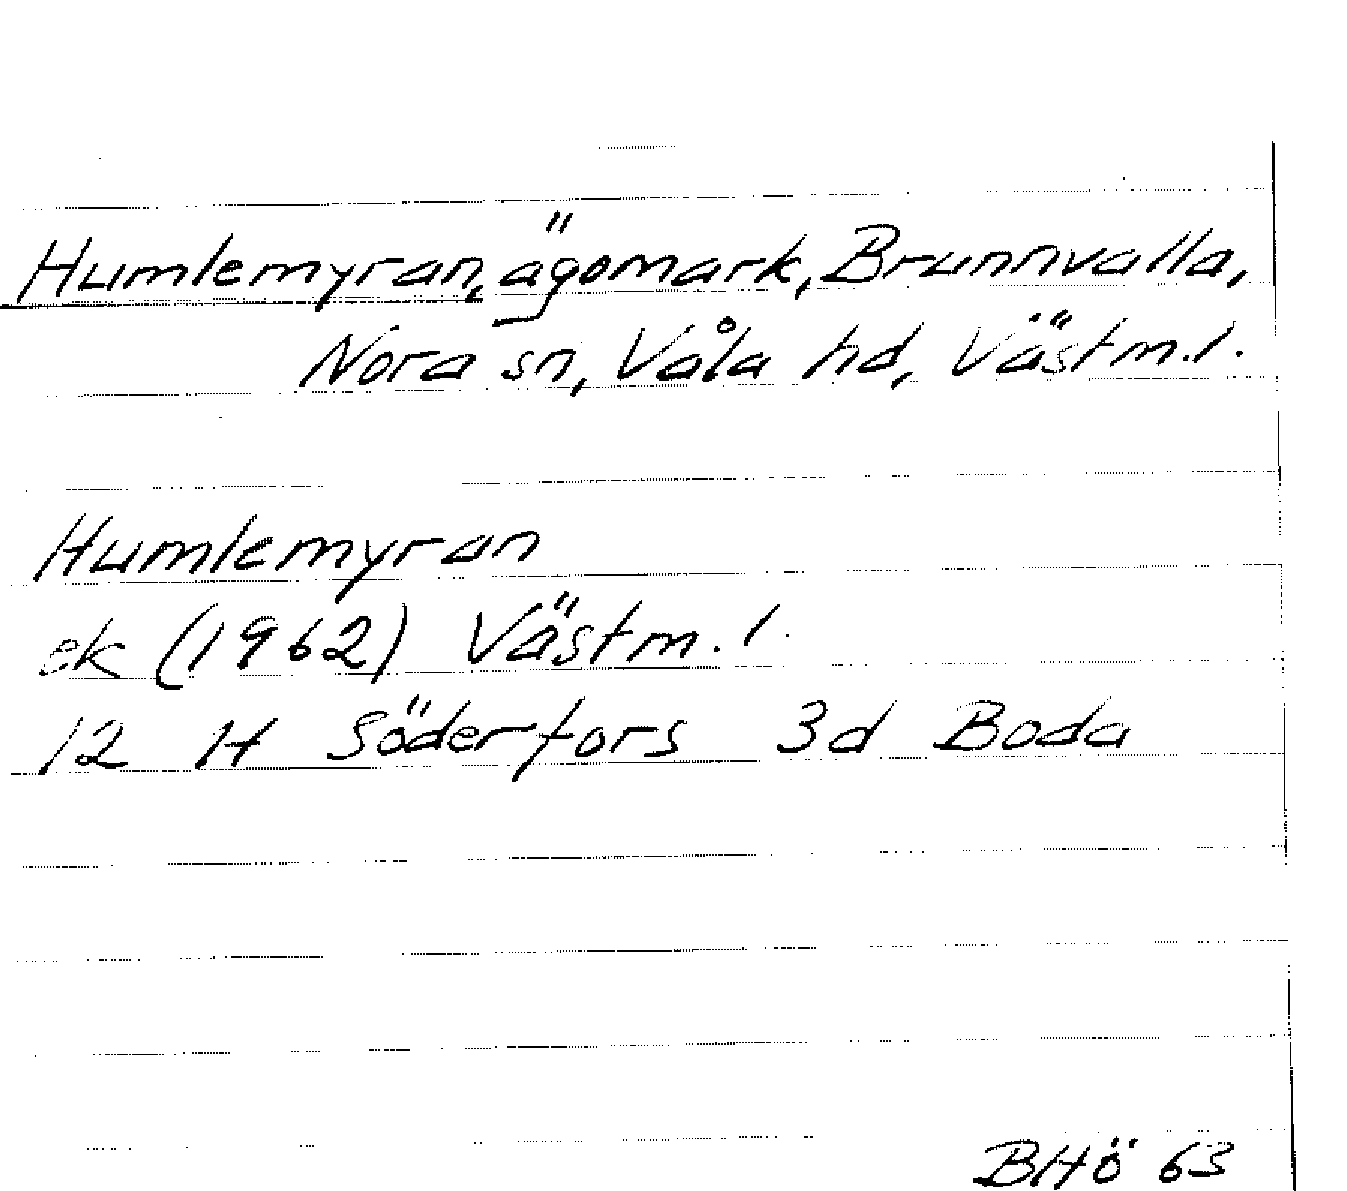 Humlemyran, ägomark, Brunnvalla,
Nora sn, Våla hd, Västm.l.
Humlemyran
ek (1962) Västm.l.
12 H Söderfors 3d Boda
BHö 63